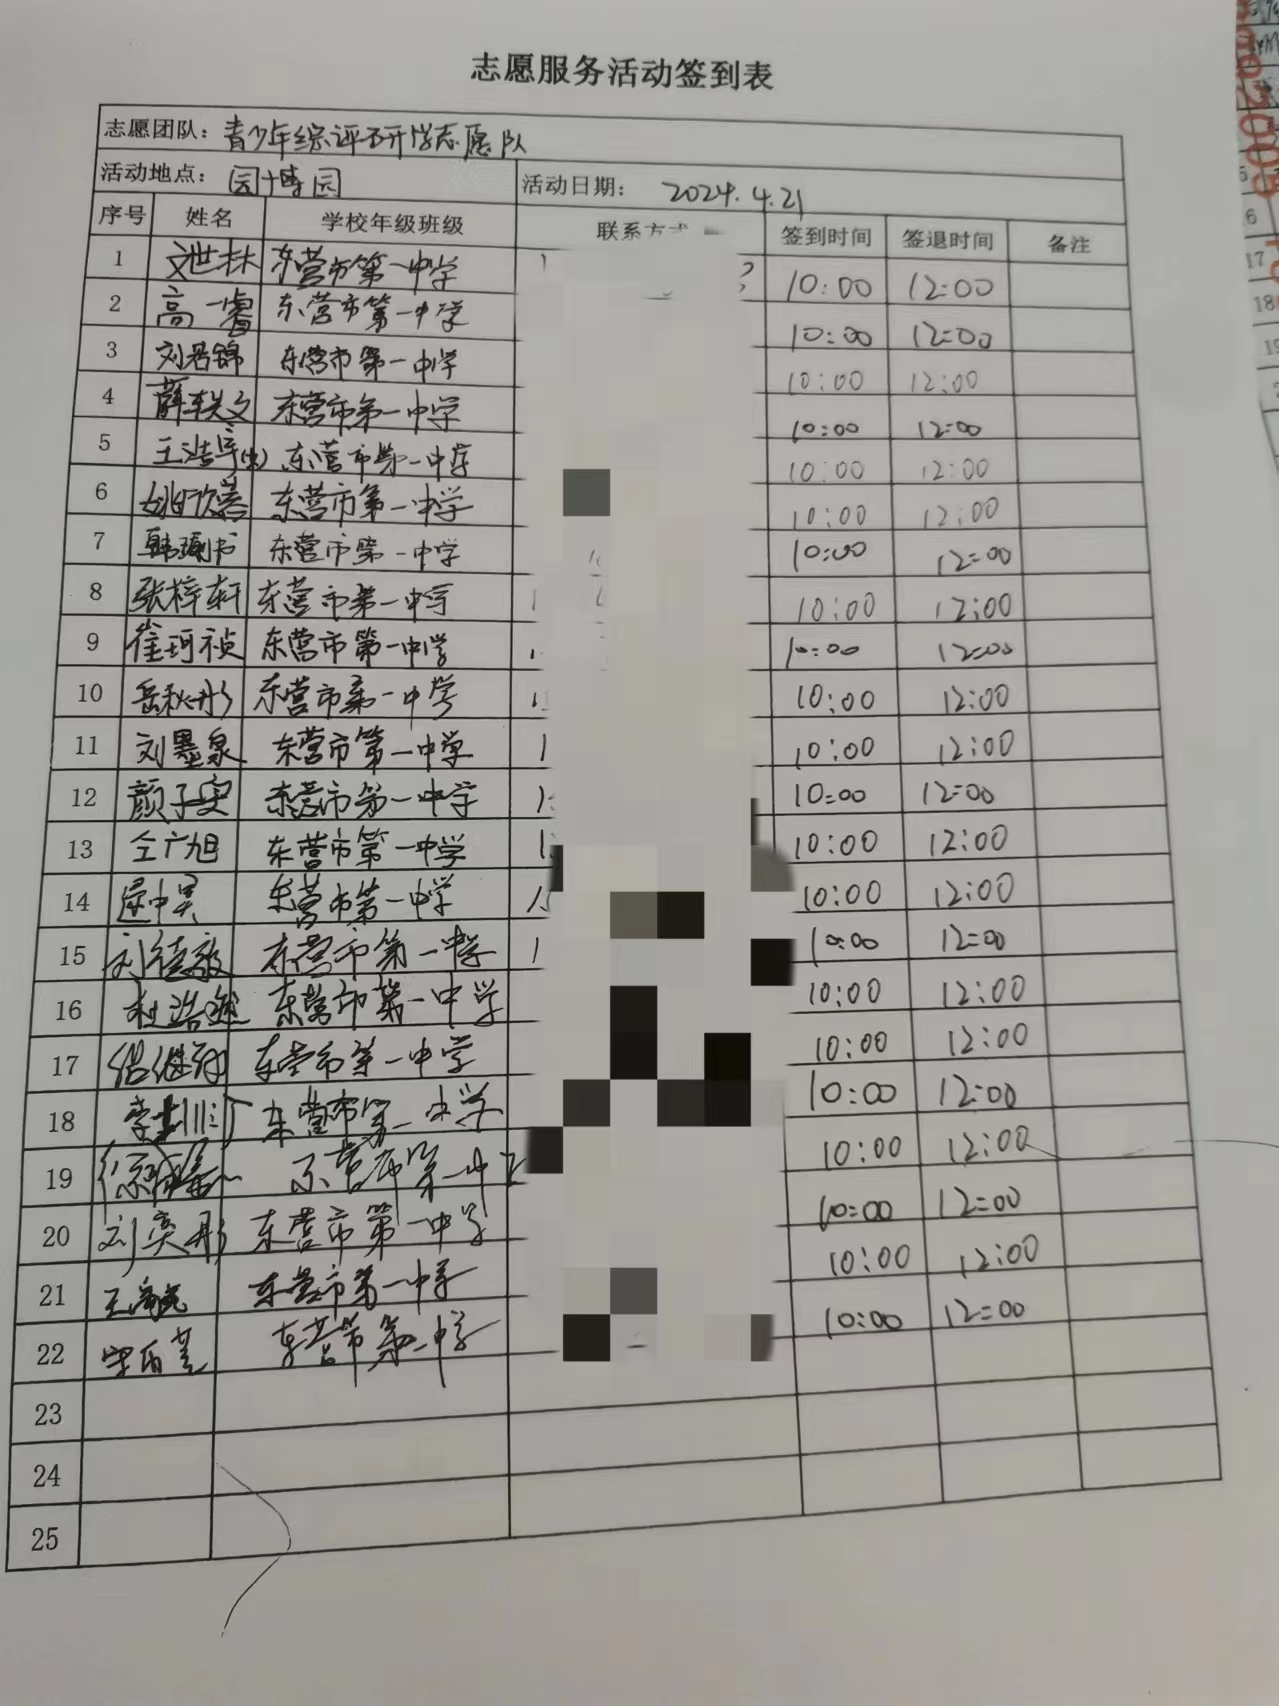 志愿服务活动签到表
志愿团队：青少年综评研学志愿队
活动地点：园博园 活动日期： 2024.4.21
序号 姓名 学校年级班级 联系方式 签到时间 签退时间 备注
1 文世林 东营市第一中学 10:00 12:00
2 高一睿 东营市第一中学 10:00 12:00
3 刘若锦 东营市第一中学 10:00 12:00
4 薛轶文 东营市第一中学 10:00 12:00
5 王浩宇 东营市第一中学 10:00 12:00
6 姚欣蓉 东营市第一中学 10:00 12:00
7 韩 东营市第一中学 10:00 12:00
8 张梓轩 东营市第一中学 10:00 12:00
9 崔珂祯 东营市第一中学 10:00 12:00
10 岳秋彤 东营市第一中学 10:00 12:00
11 刘墨泉 东营市第一中学 10:00 12:00
12 颜子雯 东营市第一中学 10:00 12:00
13 仝广旭 东营市第一中学 10:00 12:00
14 东营市第一中学 10:00 12:00
15 刘 东营市第一中学 10:00 12:00
16 杜浩 东营市第一中学 10:00 12:00
17 东营市第一中学 10:00 12:00
18 李 东营市第一中学 10:00 12:00
19 东营市第一中 10:00 12:00
20 刘奕彤 东营市第一中学 10:00 12:00
21 王 东营市第一中学 10:00 12:00
22 东营市第一中学 10:00 12:00
23
24
25